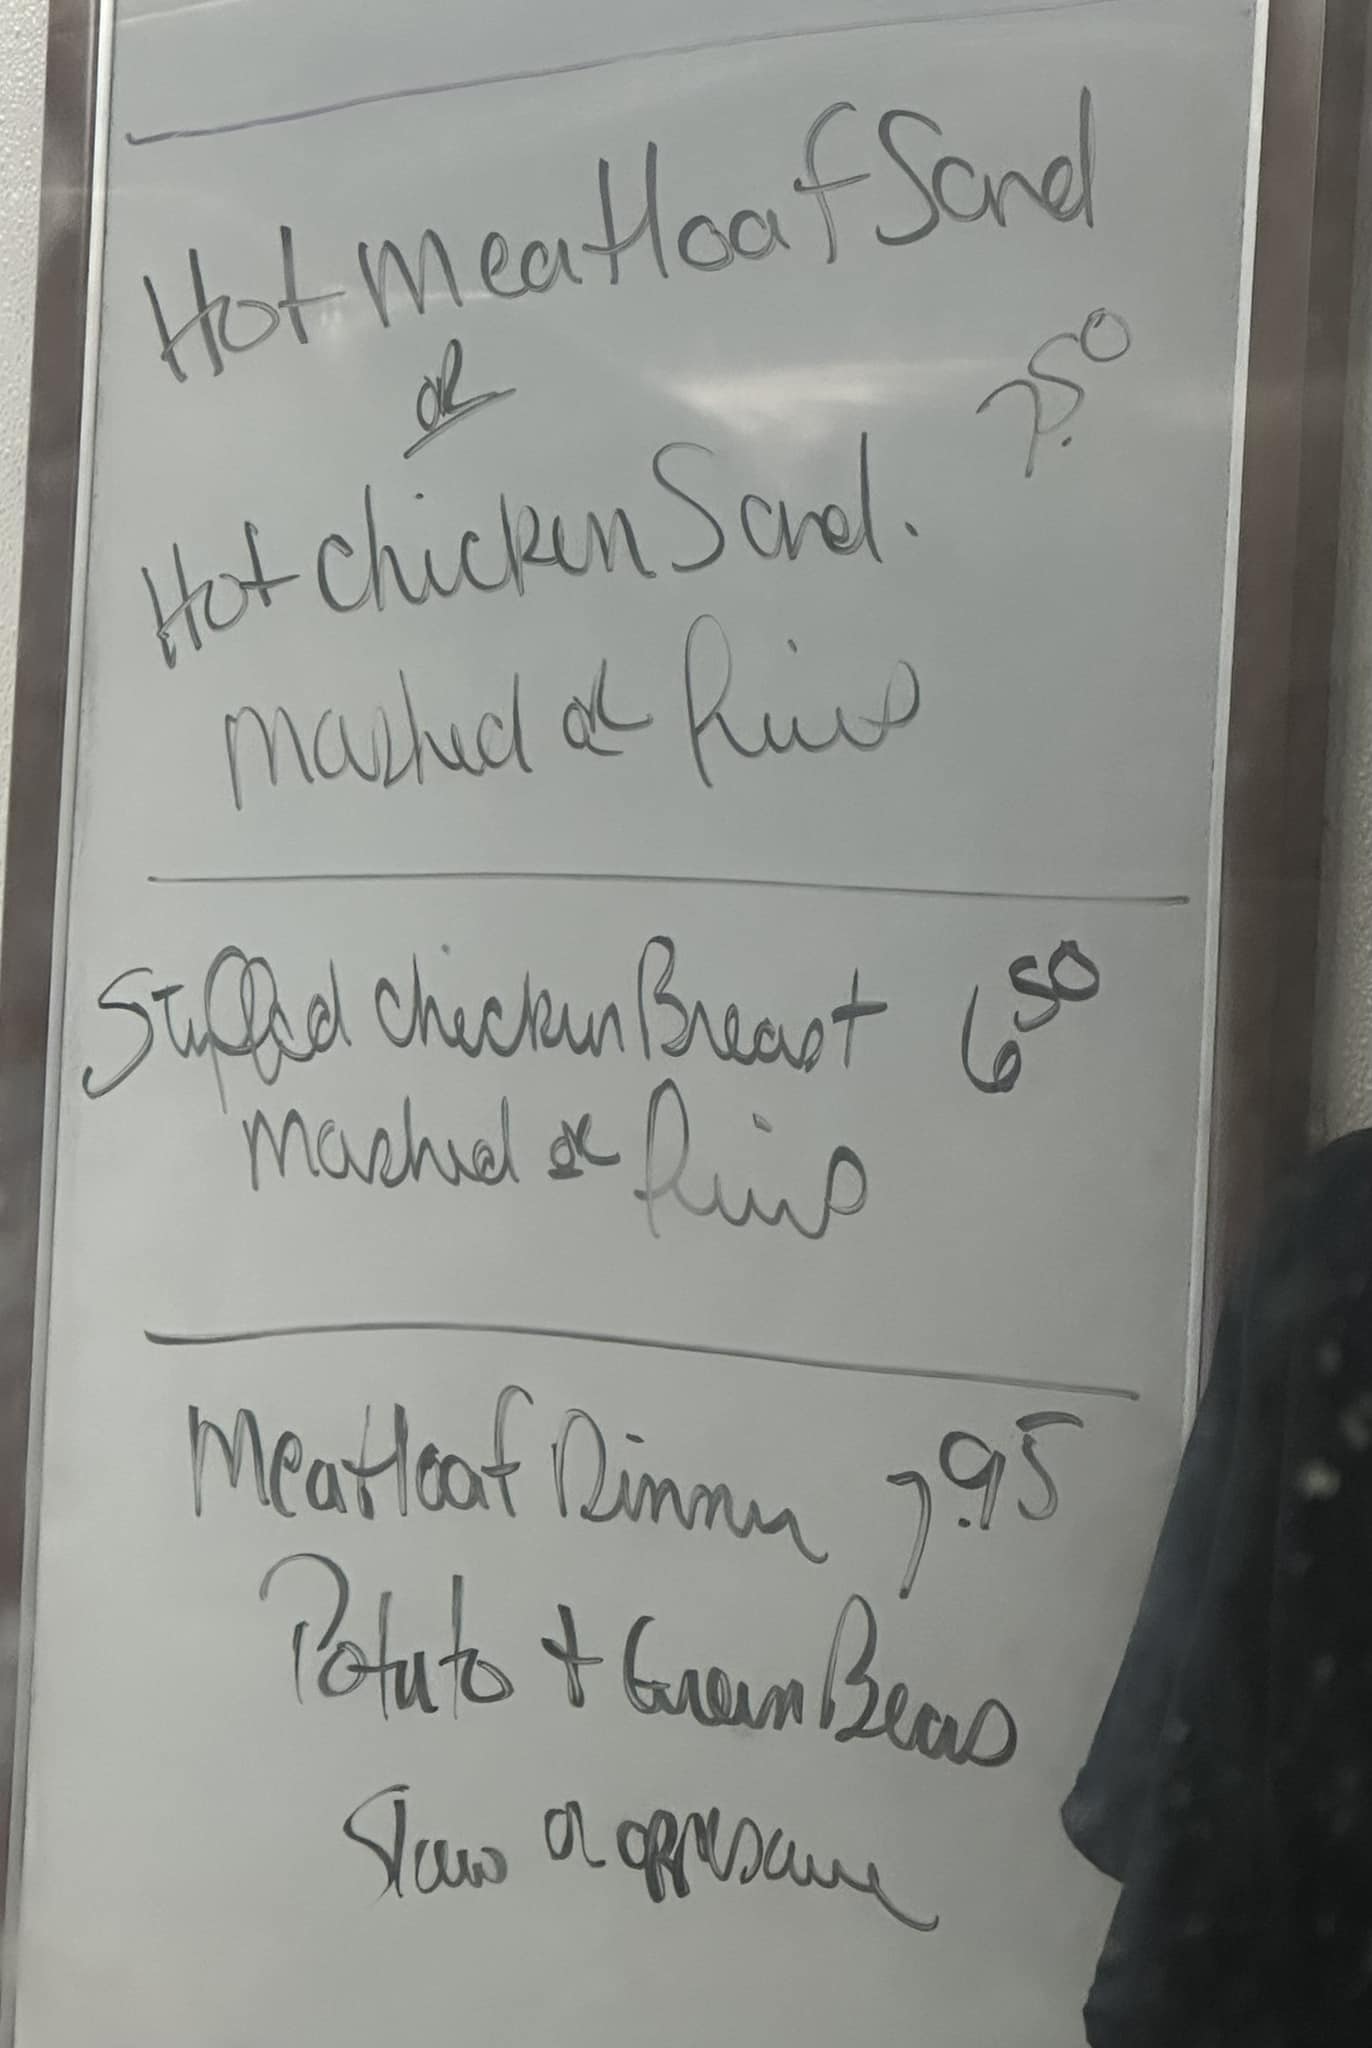 Hot Meatloaf Sand
OR
7.50
Hot Chicken Sand.
Mashed OR Fries
Stuffed Chicken Breast 6 50
Mashed OR Fries
Meatloaf Dinner 7.95
Potato + Green Beans
Slaw or applesauce